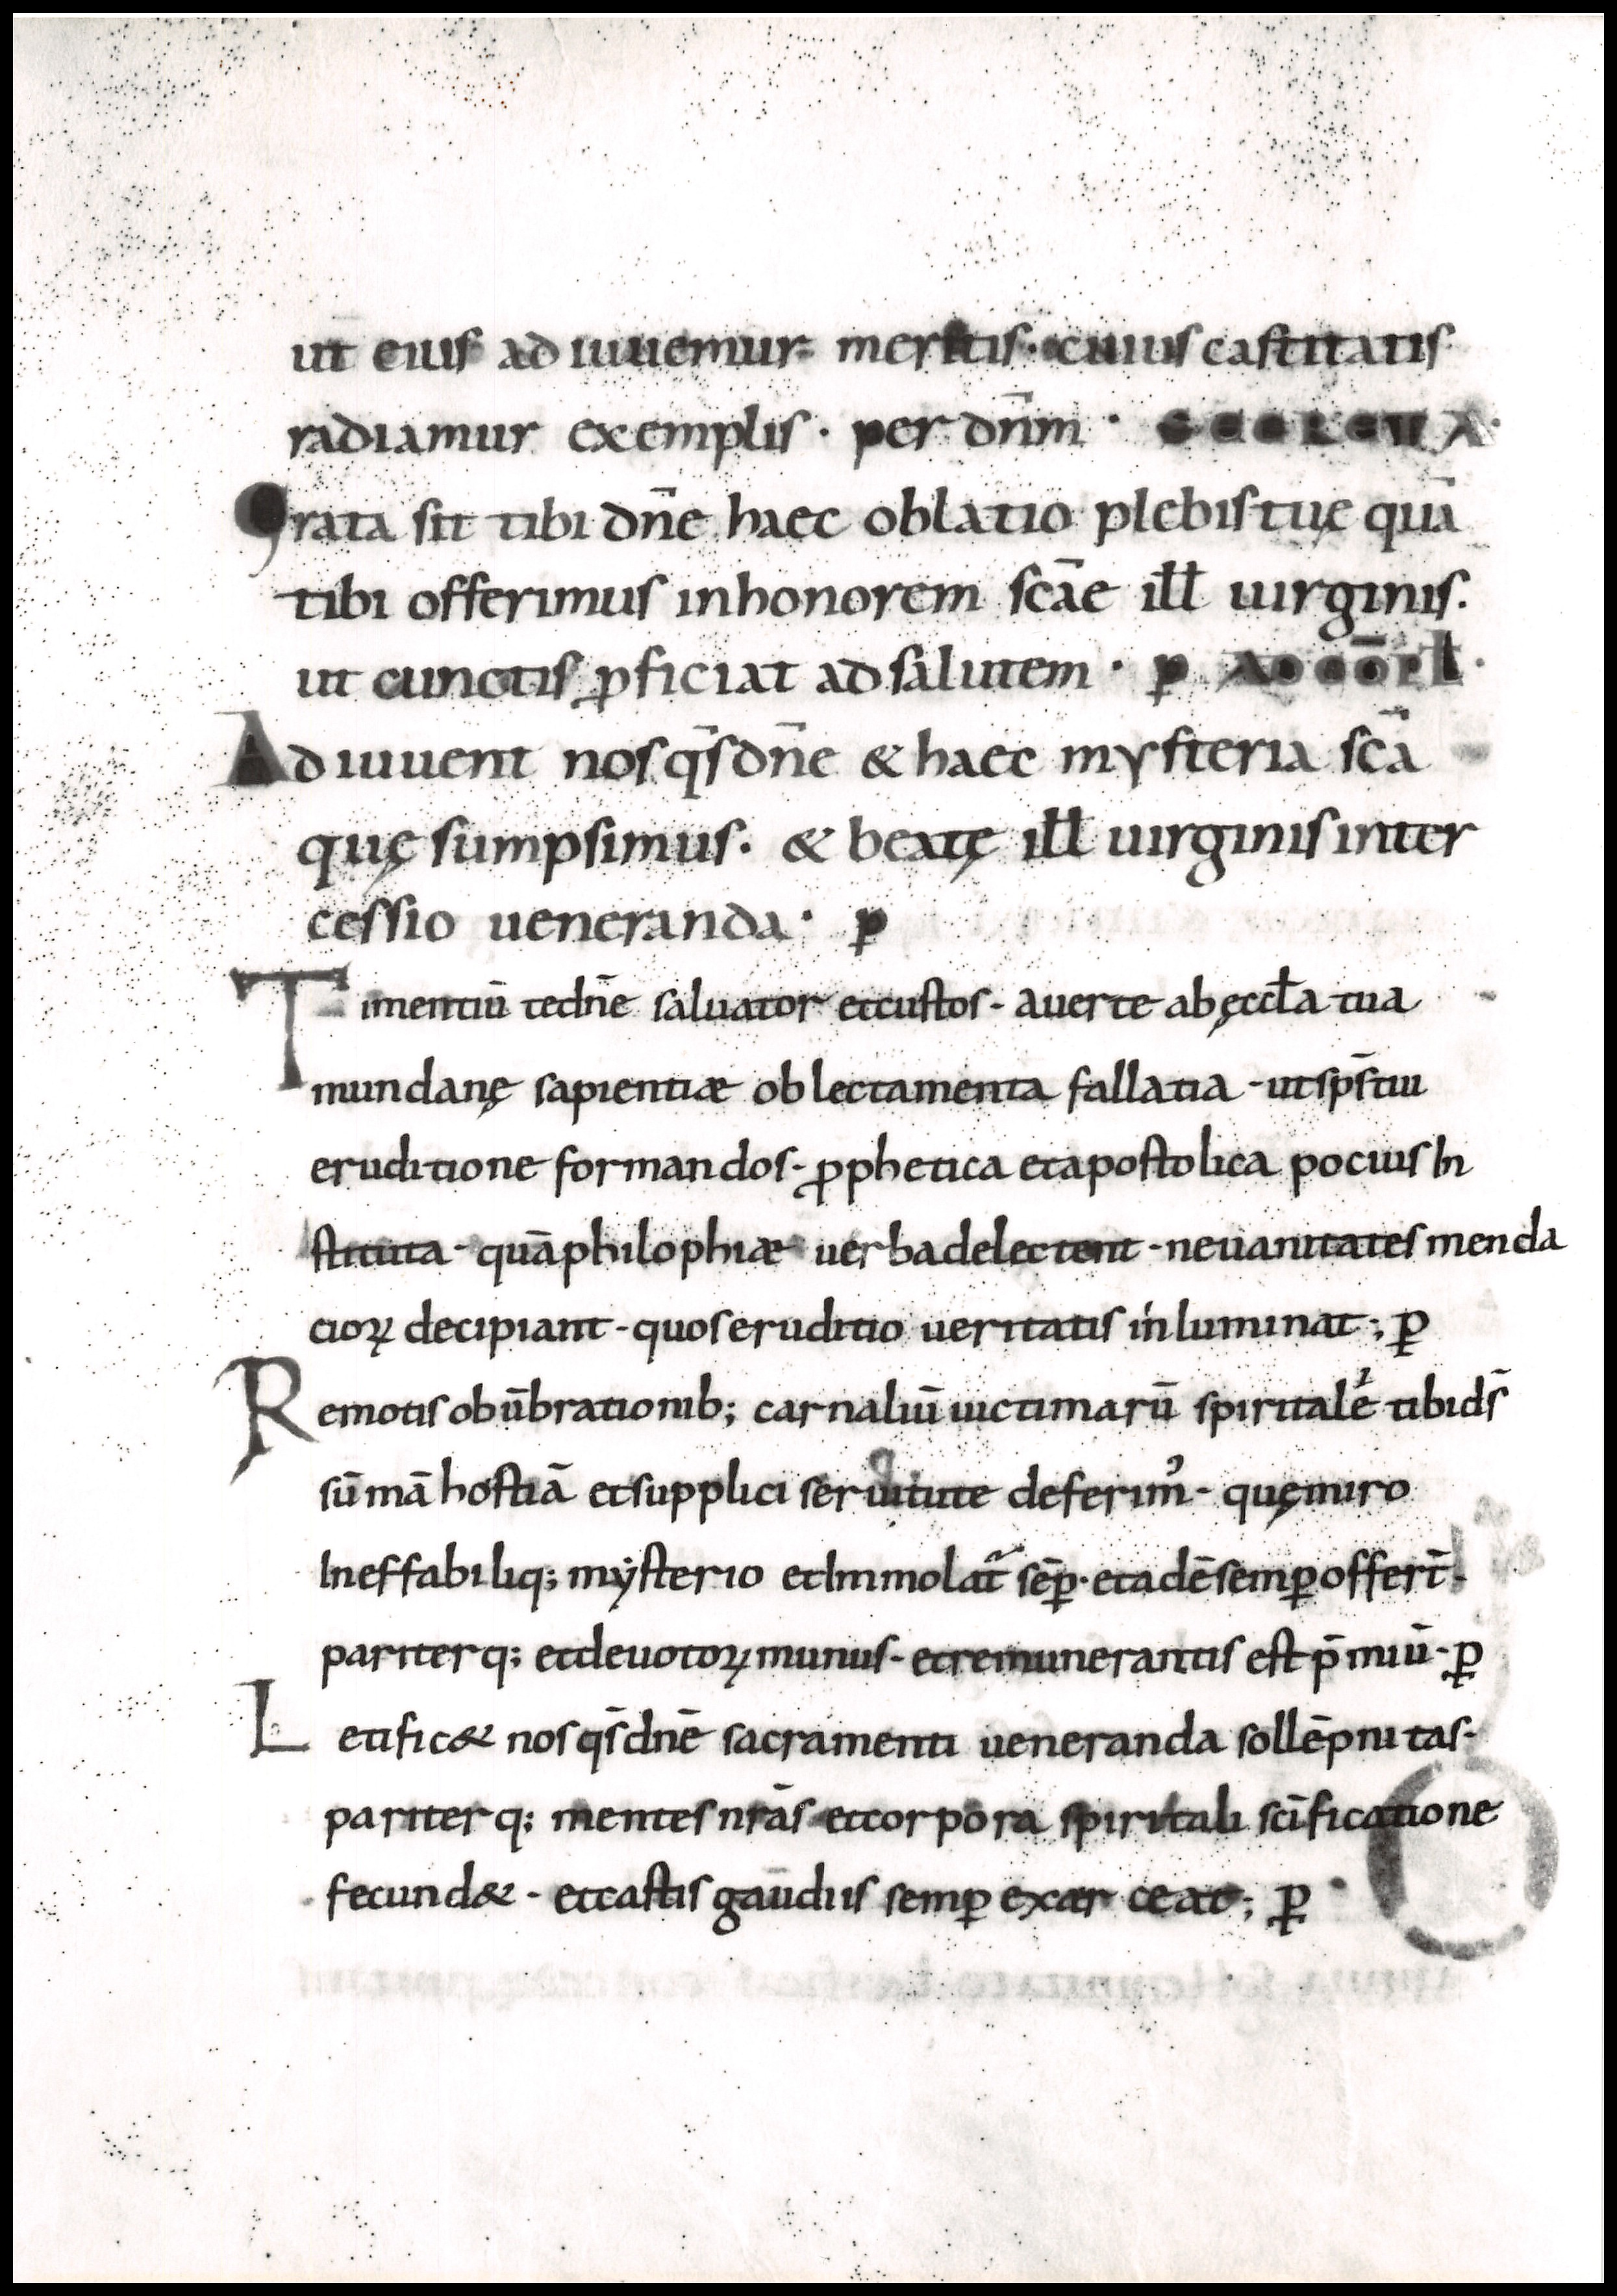 ut eius adiuuemur meritis· cuius castitatis
radiamur exemplis· per dn̄m·
Grata sit tibi dn̄e haec oblatio plebis tuę quā
tibi offerimus in honorem scāe ill̄ uirginis.
ut cunctis ꝓficiat ad salutem· p̱ AD CŌPL·
Adiuuent nos qs̄ dn̄e & haec mysteria scā
quę sumpsimus. & beatę ill̄ uirginis inter
cessio ueneranda· p̱
Timentiū te dn̄e saluator et custos- auerte ab ęccl̄a tua
mundanę sapientiæ oblectamenta fallatia -ut sps̄ tui
eruditione formandos- ꝓphetica et apostolica pocius In
stituta- quā philophiæ uerba delectent -ne uanitates menda
cioꝝ decipiant -quos eruditio ueritatis inluminat; ꝑ
Remotis obūbrationib; carnaliū uictimarū spiritalē tibi ds̄
sūmā hostiā et supplici seruitute deferim᾿- quę miro
Ineffabiliq; mẏsterio et Immolat̄ sēꝑ· et adē semꝑ offert̄.
pariterq; et deuotoꝝ munus- et remunerantis est p̄miū- ꝑ
Letific& nos qs̄ dn̄e sacramenti ueneranda sollēpnitas-
pariterq; mentes nrās et corpora spiritali scīficatione
fecund& - et castis gaudiis semꝑ exerceat; ꝑ